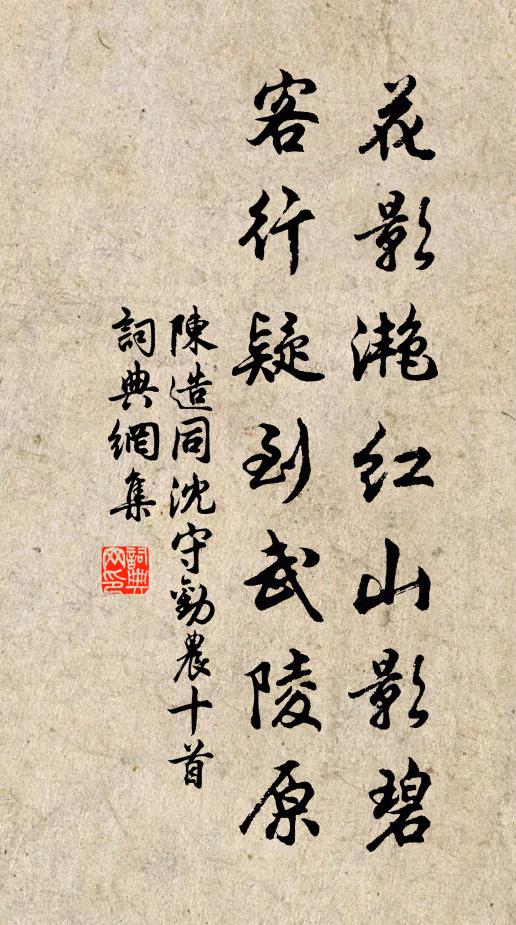 花影滟红山影碧
客行疑到武陵原
陳造同沈守勸農十首
詞典網集
詞典網印